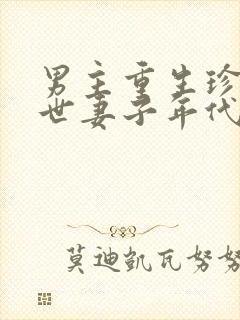 男主重生珍
世妻子年代
莫迪凯瓦努努